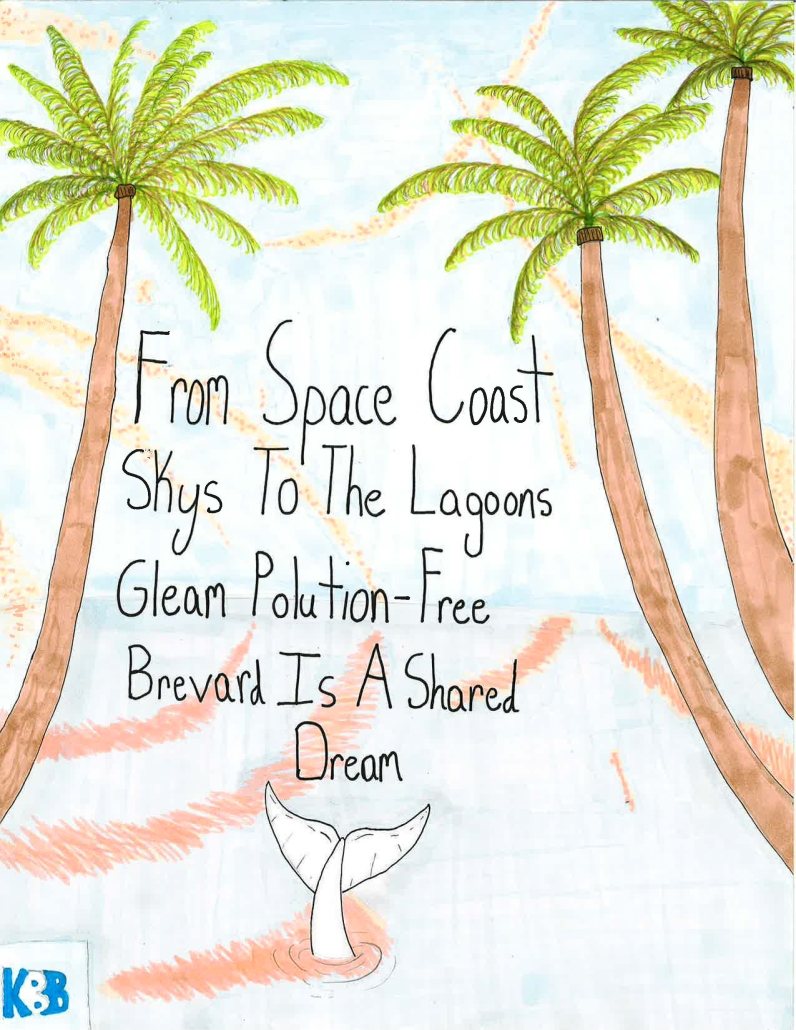 From Space Coast
Skys To The Lagoons
Gleam Polution-Free
Brevard Is A Shared
Dream
KBB